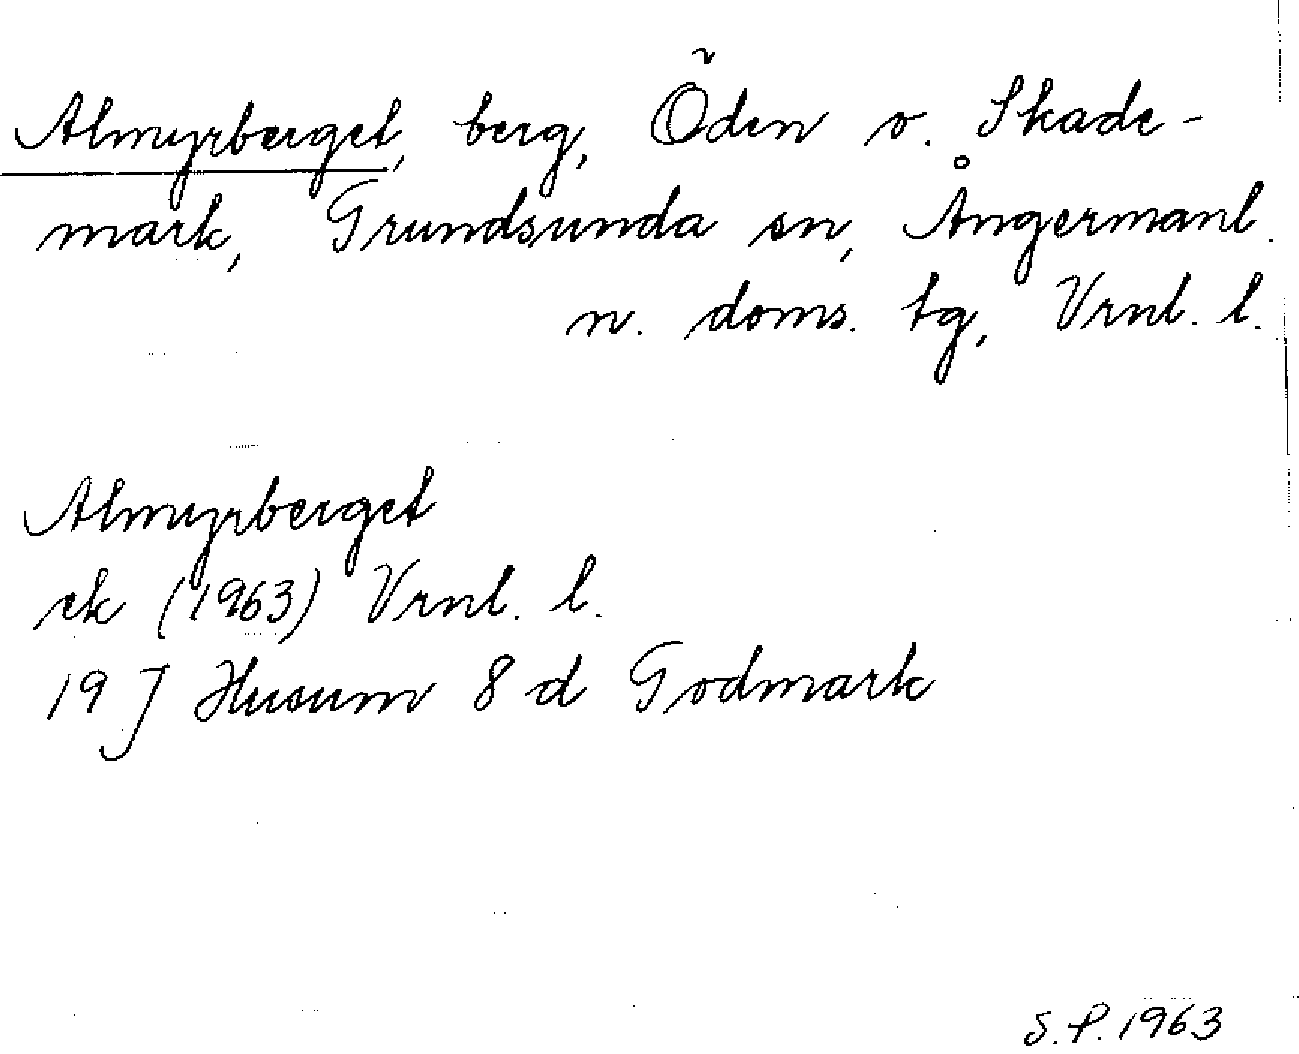 Almyrberget, berg, Öden o. Skade-
mark, Grundsunda sn, Ångermanl.
n. doms. tg, Vrnl. l.
Almyrberget
ek (1963) Vrnl. l.
19 J Husum 8 d Godmark
S.P. 1963